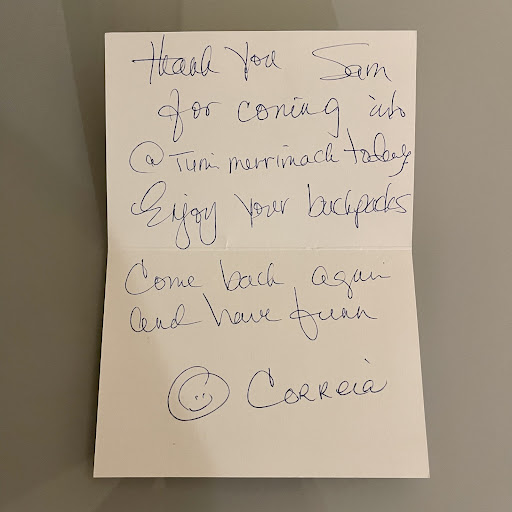 Thank You Sam
for coming into
@ Tumi merrimack today
Enjoy your backpacks
Come back again
and have funn
Correia